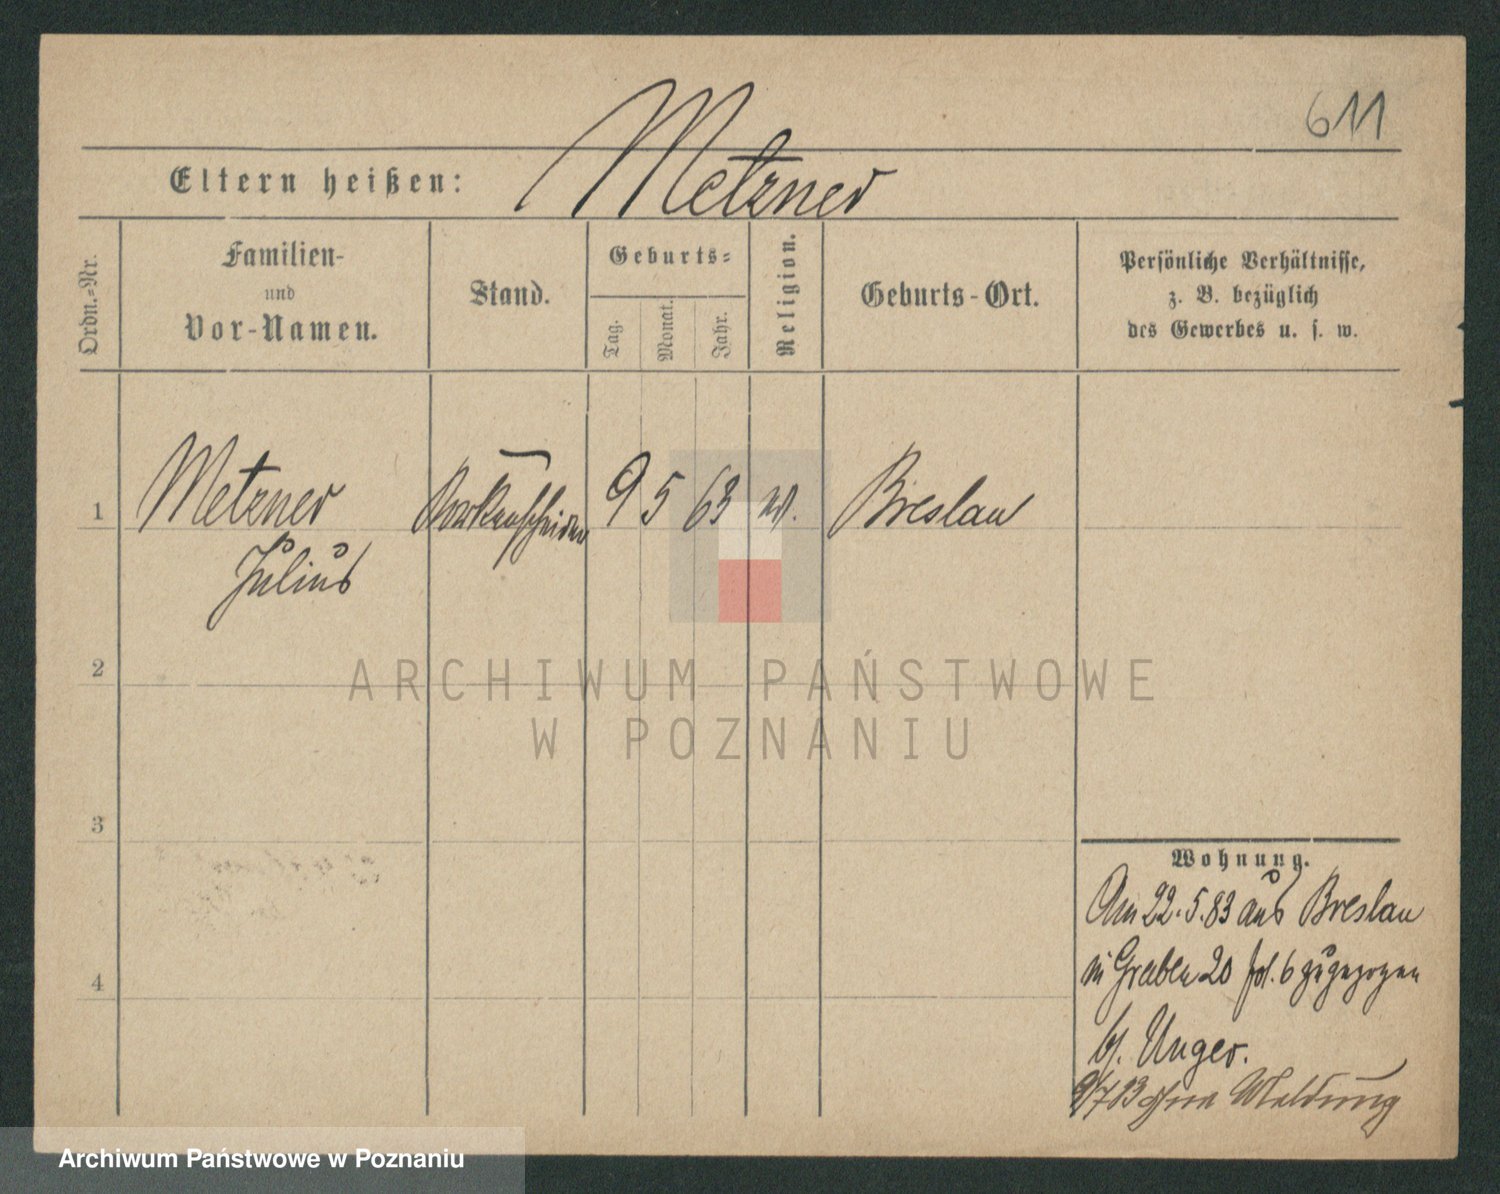 611
Eltern heißen: Metzner
Ordn.-Nr.
Familien-
und
Vor-Namen.
Stand.
Geburts-
Tag.
Monat.
Jahr.
Religion.
Geburts-Ort.
Persönliche Verhältnisse,
z. B. bezüglich
des Gewerbes u. s. w.
1 Metzner 9 5 63 Breslau
Julius
2
ARCHIWUM PAŃSTWOWE
W POZNANIU
3
Wohnung.
Am 22.5.83 aus Breslau
in Graben 20 fol. 6 zugezogen
4
b/. Unger.
ohne Meldung
Archiwum Państwowe w Poznaniu